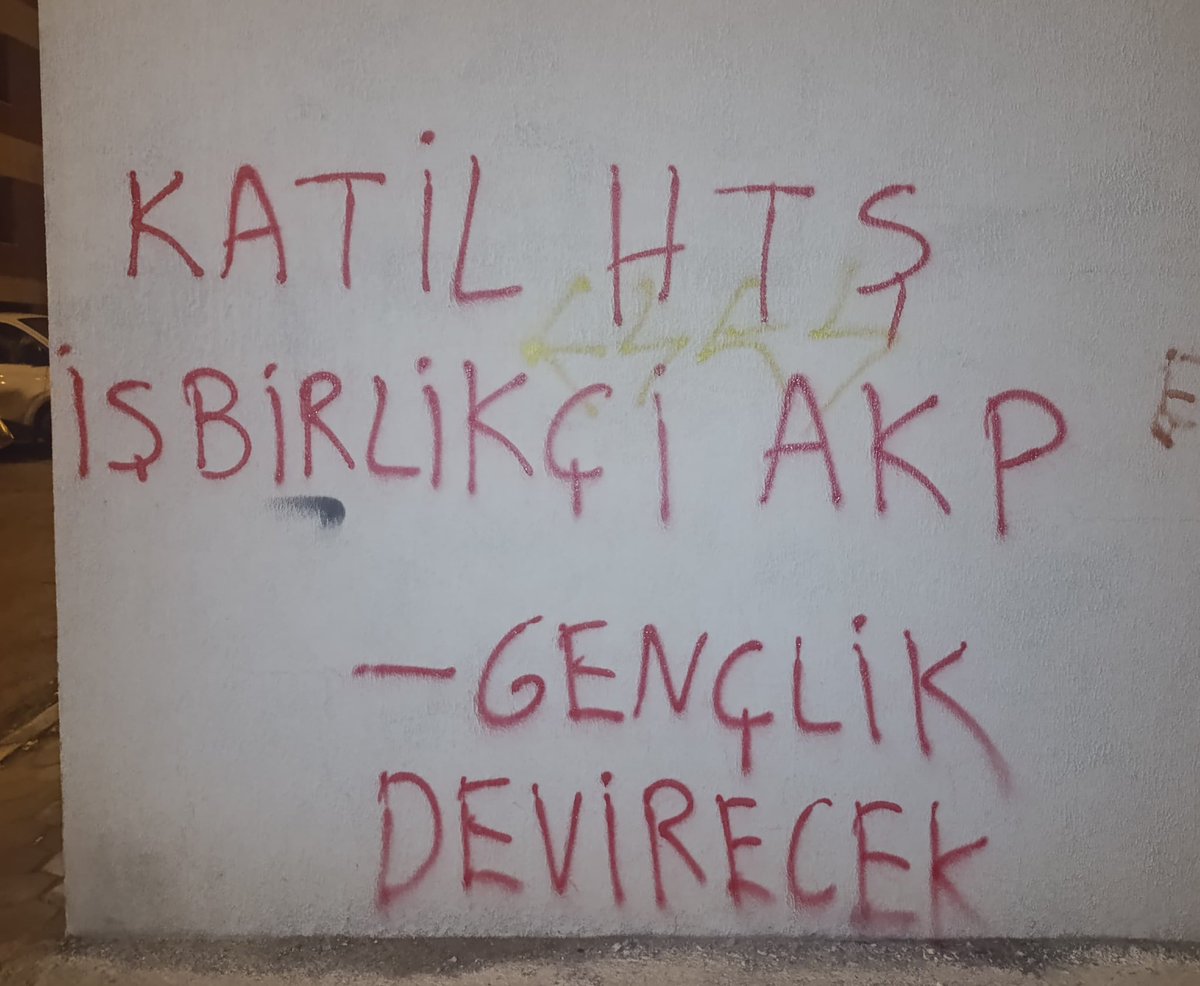 KATİL HTŞ
İŞBİRLİKÇİ AKP
—GENÇLİK
DEVİRECEK